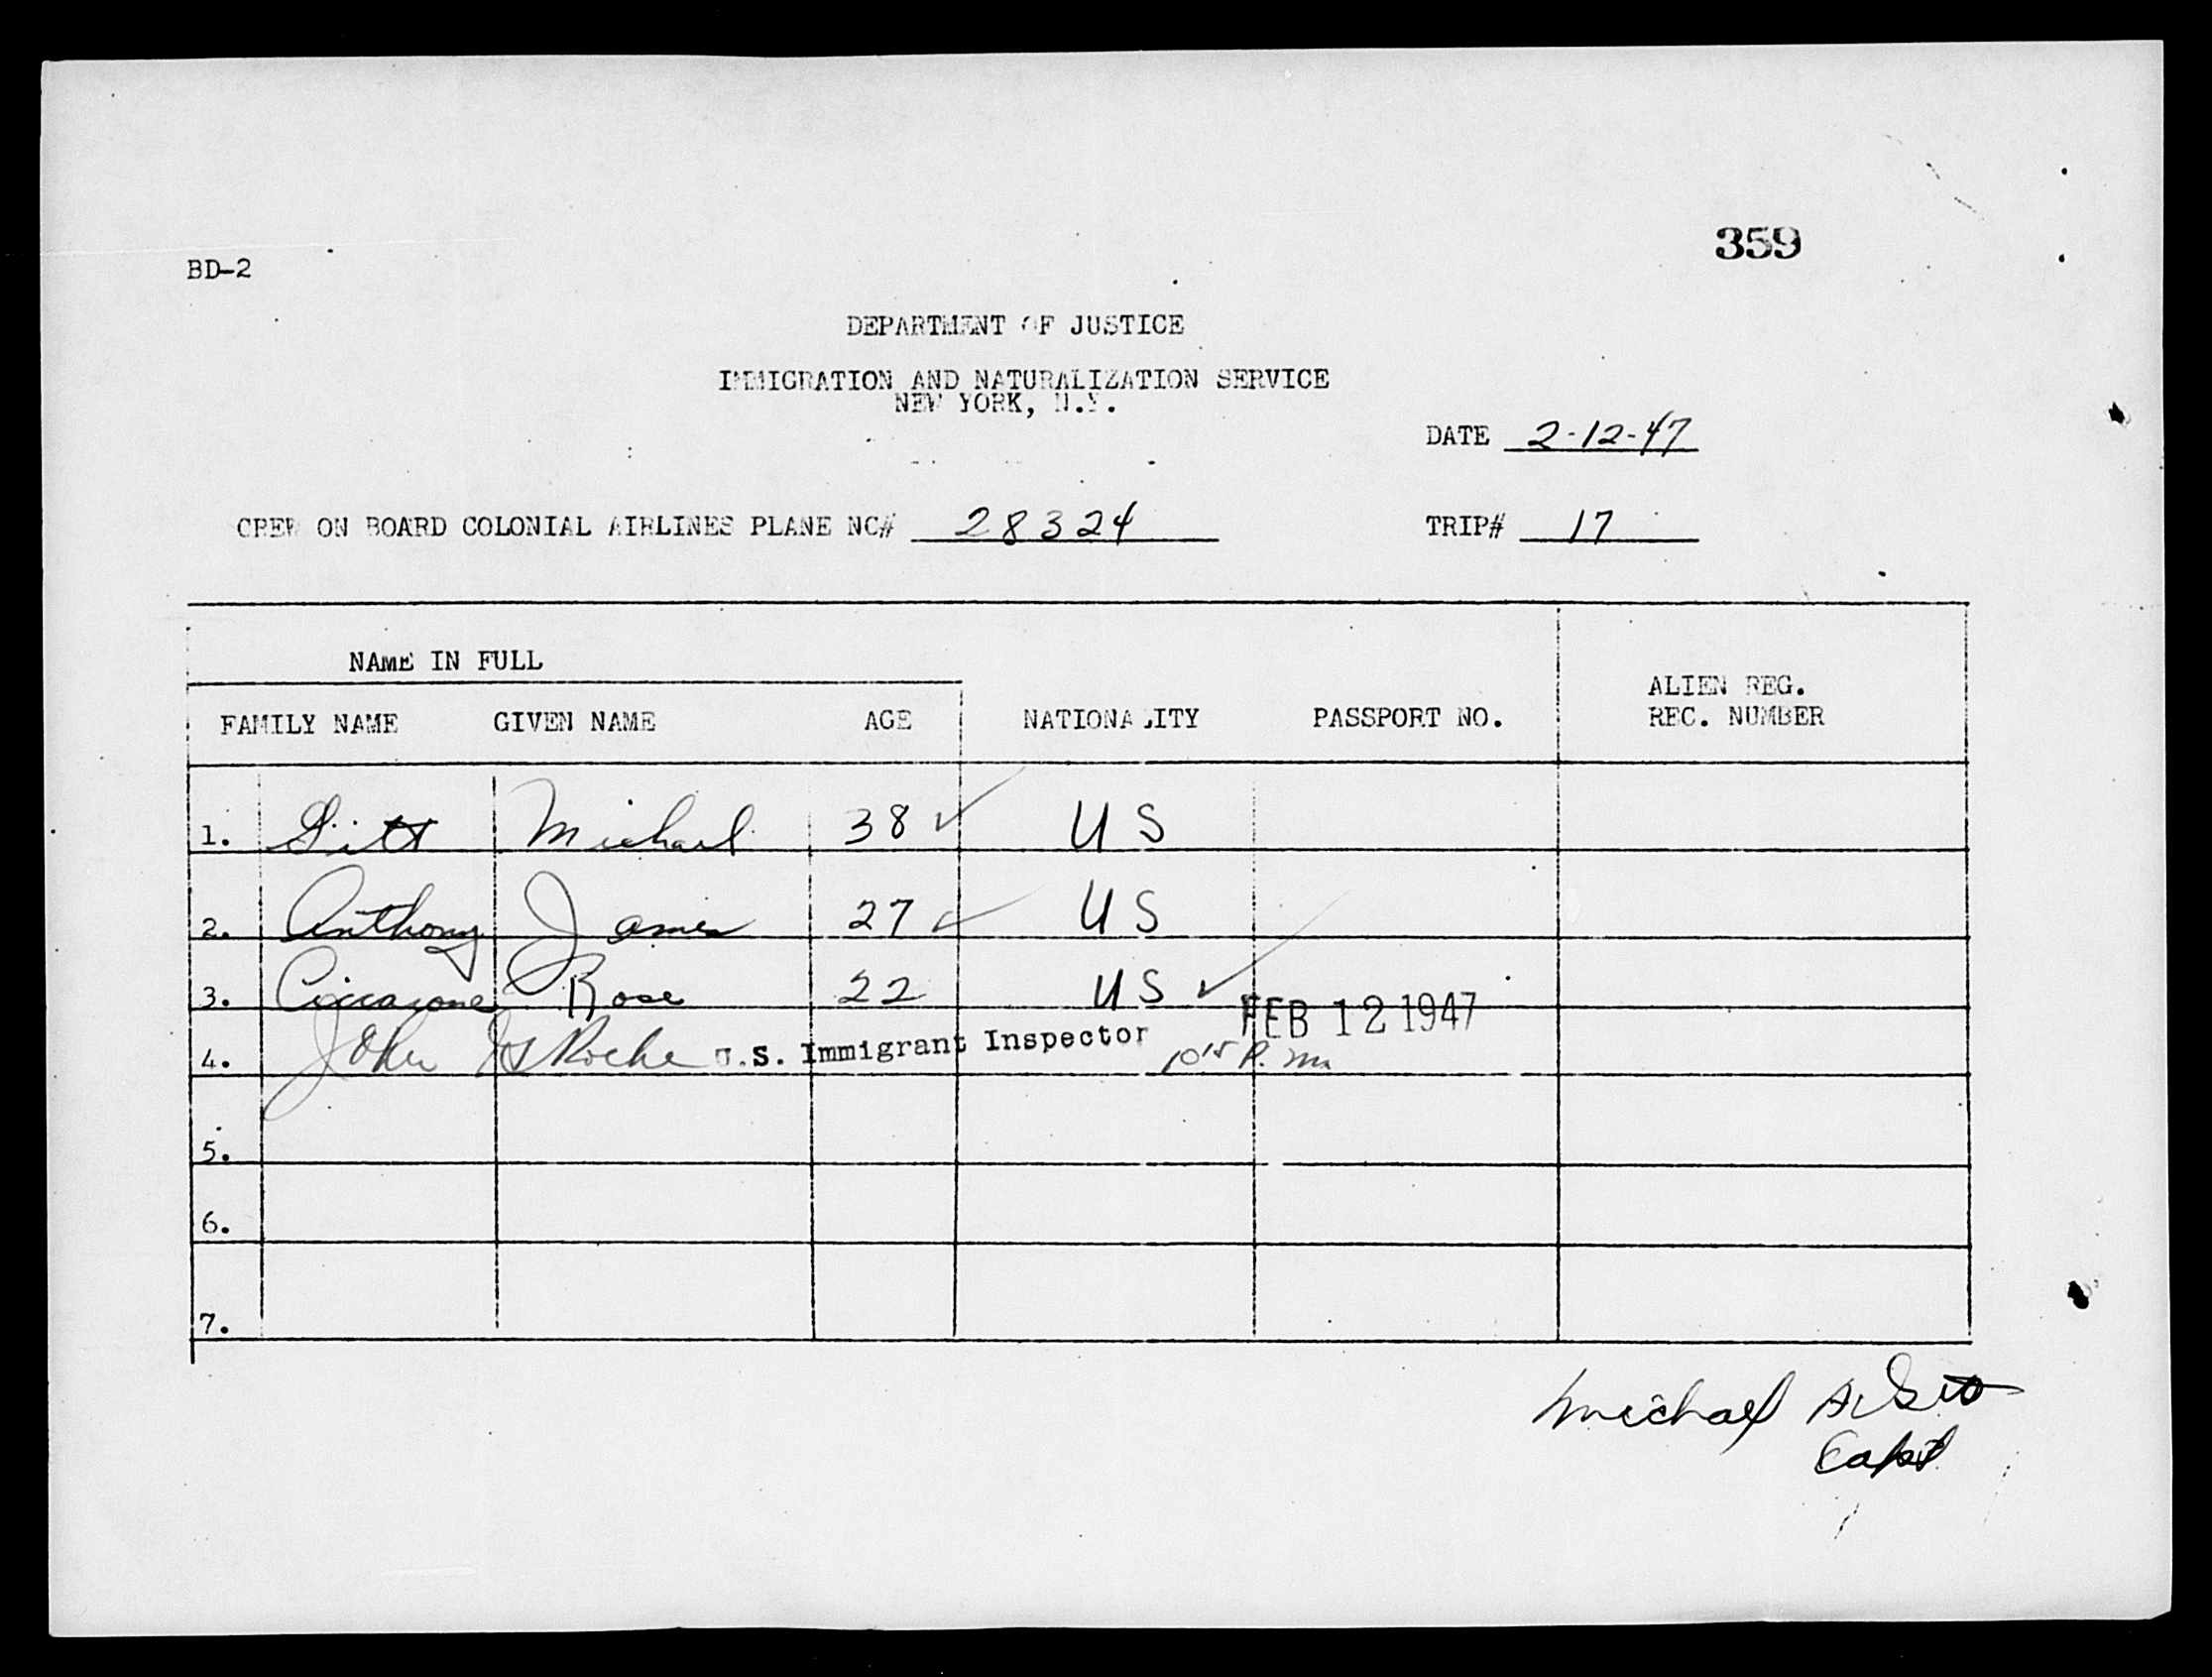 359
BD-2
DEPARTMENT OF JUSTICE
IMMIGRATION AND NATURALIZATION SERVICE
NEW YORK, N.Y.
DATE 2-12-47
CREW ON BOARD COLONIAL AIRLINES PLANE NC# 28324 TRIP# 17
NAME IN FULL
FAMILY NAME GIVEN NAME AGE NATIONALITY PASSPORT NO. ALIEN REG. REC. NUMBER
1. Gitt Michael 38 ✓ US
2. Anthony James 27 ✓ US
3. Ciccarone Rose 22 US ✓
FEB 12 1947
4. John Roche U.S. Immigrant Inspector 10 15 P.m
5.
6.
7.
Michael A. Gitt
Capt